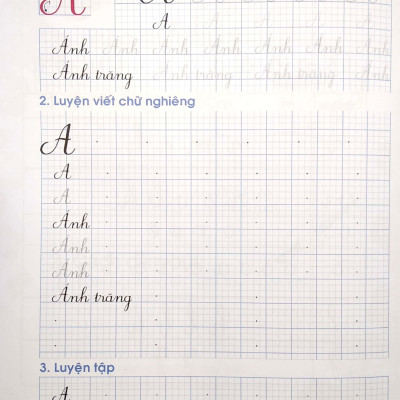 A A
A A A A A
Ánh Ánh Ánh Ánh Ánh Ánh Ánh Ánh
Ánh trăng Ánh trăng Ánh trăng Ánh
2. Luyện viết chữ nghiêng
A
A
A
Ánh
Ánh
Ánh
Ánh trăng
3. Luyện tập
A